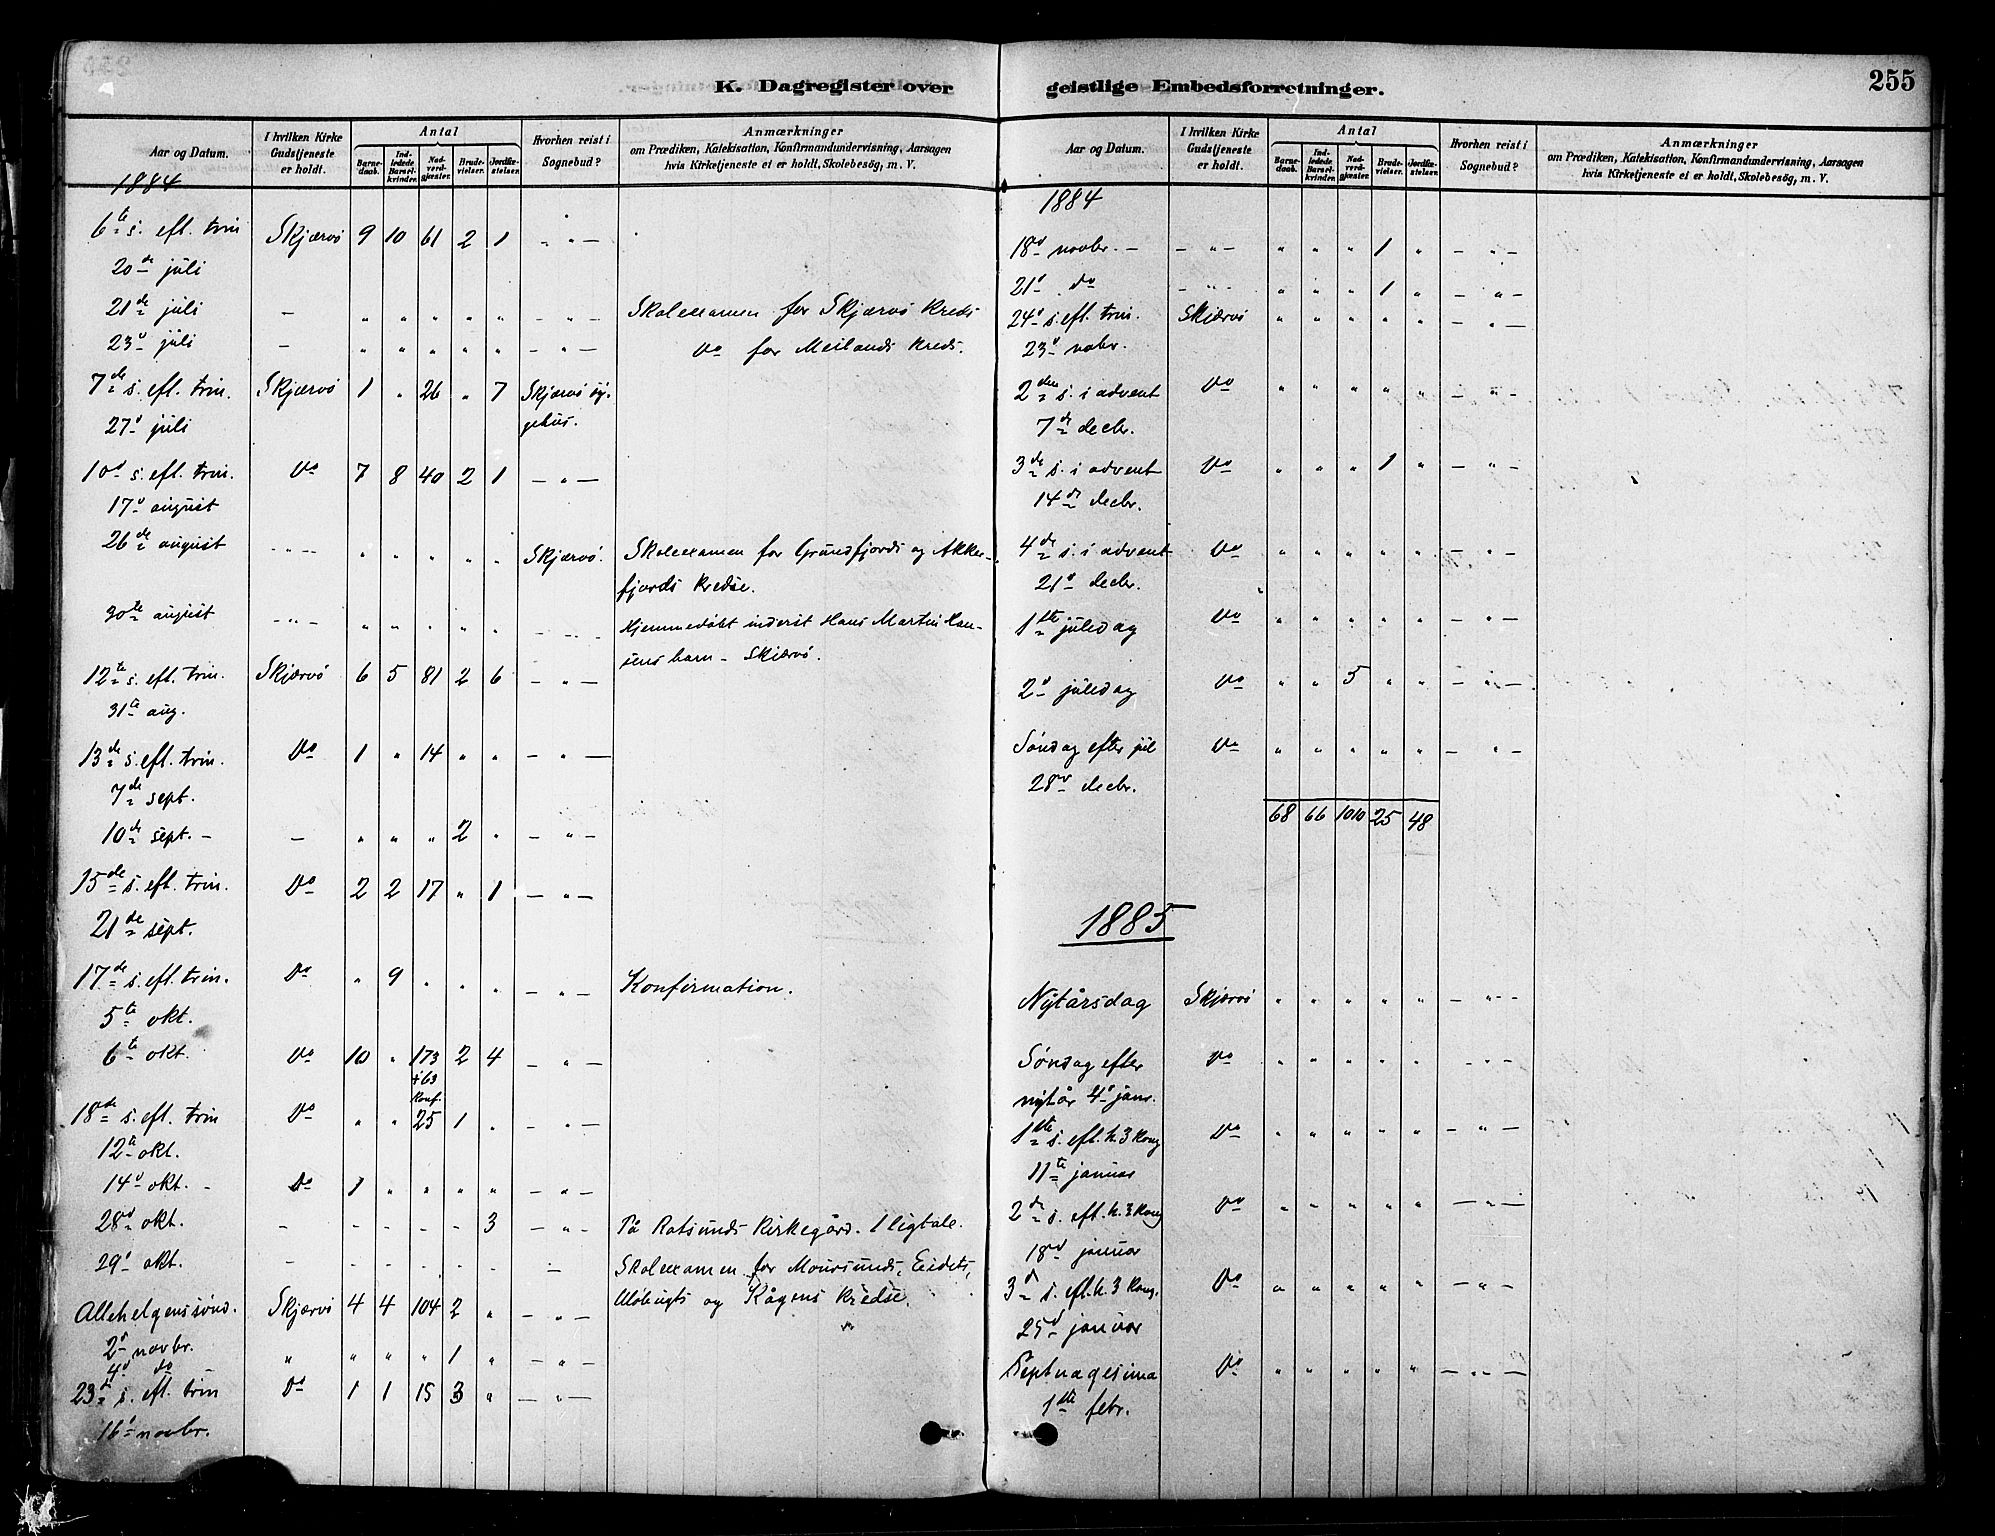 K. Dagregister over geistlige Embedsforretninger. 255
Aar og Datum. I hvilken Kirke Gudstjeneste er holdt. Antal Barnedaab. Indledede Barselkvinder. Nadverdgjæster. Brudevielser. Jordfæstelser. Hvorhen reist i Sognebud? Anmærkninger
om Prædiken, Katekisation, Konfirmandundervisning, Aarsagen
hvis Kirketjeneste ei er holdt, Skolebesög, m. V.
1884
6te s. eft. trin Skjærvö 9 10 61 2 1 " " —
20de juli
21de juli — " " " " " - " — Skoleexamen for Skjærvö Kreds
23d juli — " " " " " — " — Do for Meilands Kreds.
7de s. eft. trin. Skjærvö 1 " 26 " 7 Skjærvö sy-
27d juli gehus.
10d s. eft. trin. Do 7 8 40 2 1 — " —
17d august
26de august " — " " " " " Skjærvö. Skoleexamen for Grundfjords og Akker-
fjords Kredse.
30te august " — " " " " " — " — Hjemmedöbt inderst Hans Martin Han-
sens barn - Skjærvö.
12te s. eft. trin. Skjærvö 6 5 81 2 6 — " —
31te aug.
13de s. eft. trin. Do 1 " 14 " " — " —
7de sept.
10de sept. — — " " " 2 " — " —
15de s. eft. trin. Do 2 2 17 " 1 — " —
21de sept.
17de s. eft. trin. Do " 9 " " " — " — Konfirmation.
5te okt.
6te okt. Do 10 " 173 2 4 — " —
+63
Konf.
18de s. eft. trin Do " " 25 1 " — " —
12te okt.
14d okt. - Do 1 " " " " — " —
28d okt. - - - - - 3 — " - På Rotsunds Kirkegård. 1 ligtale.
29d okt. - - - - - - — Skoleexamen for Moursunds, Eidets,
og Kågens Kredse.
Allehelgenssönd. Skjærvö 4 4 104 2 " — " —
2d novbr.
4d do " " " " 1 " — " —
23d s. eft. trin Do 1 1 15 3 " — " —
16d novbr.
Aar og Datum. I hvilken Kirke Gudstjeneste er holdt. Antal Barnedaab. Indledede Barselkvinder. Nadverdgjæster. Brudevielser. Jordfæstelser. Hvorhen reist i Sognebud? Anmærkninger
om Prædiken, Katekisation, Konfirmandundervisning, Aarsagen
hvis Kirketjeneste ei er holdt, Skolebesög, m. V.
1884
18d novbr. — — " — " " " 1 " — " —
21d do — " — " " " 1 " — " —
24d s. eft. trin. Skjærvö " " " " " — " —
23d nobr.
2den s. i advent Do " " " " " — " —
7de decbr.
3de s. i advent Do " " " 1 " — " —
14de decbr.
4de s. i advent Do " " " " " — " —
21d decbr.
1ste juledag Do " " " " " — " —
2d juledag Do " " 5 " " — " —
Söndag efter jul Do " " " " " — " —
28de decbr.
68 66 1010 25 48
1885
Nytårsdag Skjærvö " " " " " — " —
Söndag efter Do " " " " " — " —
nytår 4d janr.
1ste s. eft. h. 3 Kong Do " " " " " — " —
11te januar
2de s. eft. h. 3 Kong Do " " " " " — " —
18d januar
3d s. eft. h. 3 Kong. Do " " " " " — " —
25d januar
Septuagesima Do " " " " " — " —
1ste febr.